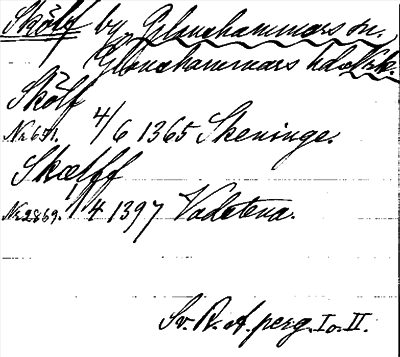 Skölf by, Glanshammars sn.
Glanshammars hd.
Skölf
4/6 1365 Skeninge.
Skælff
No 2869. 1/4 1397 Vadstena.
Sv. R. A. perg. I o. II.